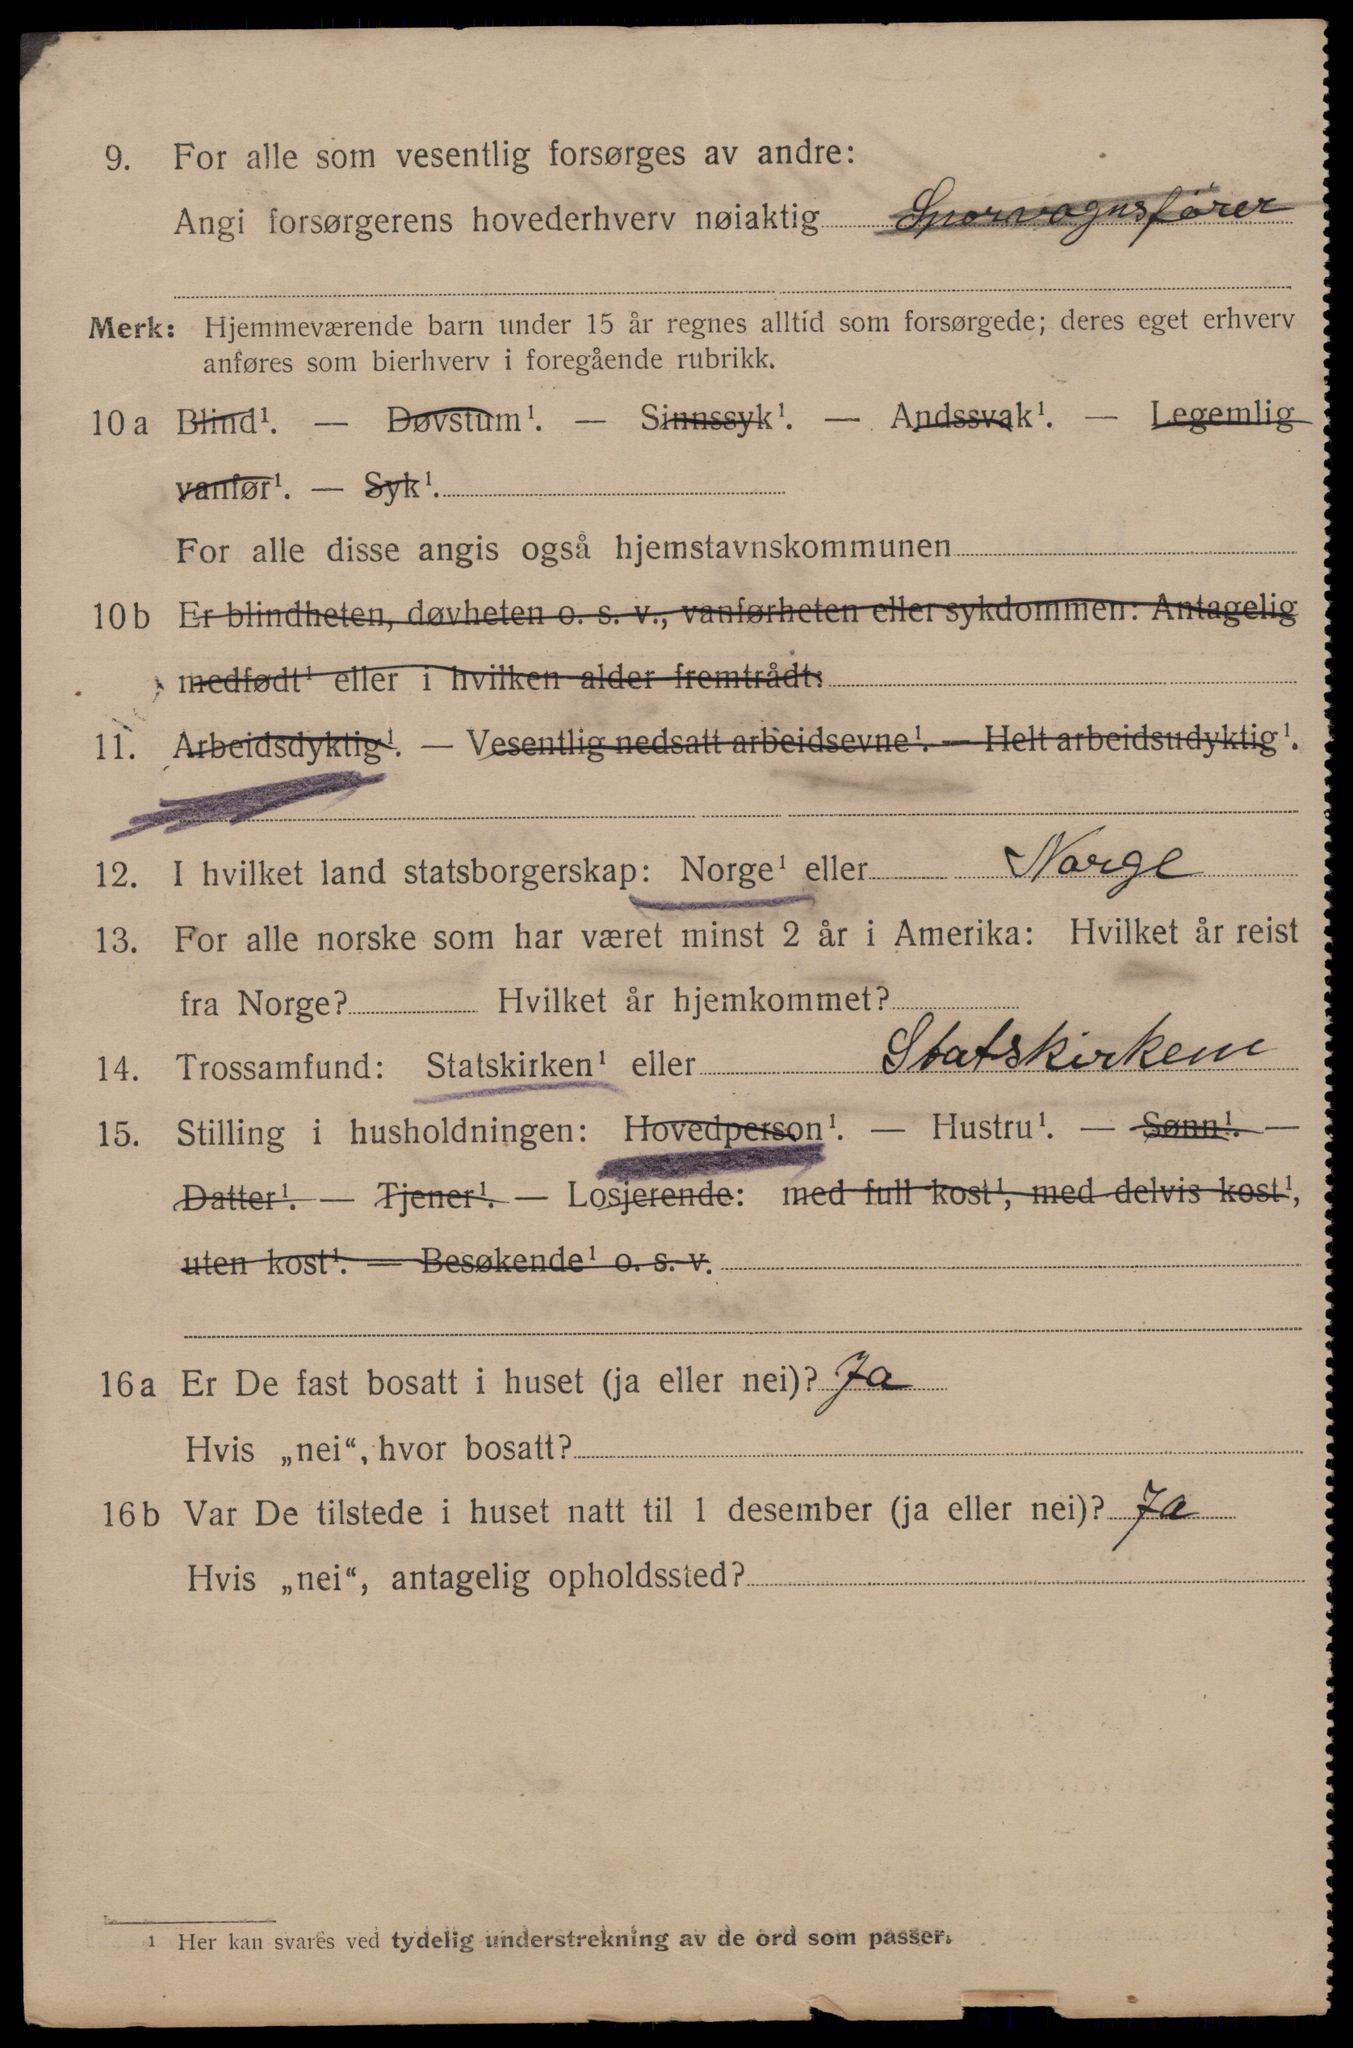 9. For alle som vesentlig forsørges av andre:
Angi forsørgerens hovederhverv nøiaktig Sporvognsfører
Merk: Hjemmeværende barn under 15 år regnes alltid som forsørgede; deres eget erhverv
anføres som bierhverv i foregående rubrikk.
10 a Blind¹. — Døvstum¹. — Sinnssyk¹. — Andssvak¹. — Legemlig
vanfør¹. — Syk¹.
For alle disse angis også hjemstavnskommunen
10 b Er blindheten, døvheten o. s. v., vanførheten eller sykdommen: Antagelig
medfødt¹ eller i hvilken alder fremtrådt:
11. Arbeidsdyktig¹. — Vesentlig nedsatt arbeidsevne¹. — Helt arbeidsudyktig¹.
12. I hvilket land statsborgerskap: Norge¹ eller Norge
13. For alle norske som har været minst 2 år i Amerika: Hvilket år reist
fra Norge? Hvilket år hjemkommet?
14. Trossamfund: Statskirken¹ eller Statskirken
15. Stilling i husholdningen: Hovedperson¹. — Hustru¹. — Sønn¹. —
Datter¹. — Tjener¹. — Losjerende: med full kost¹, med delvis kost¹,
uten kost¹. — Besøkende¹ o. s. v.
16 a Er De fast bosatt i huset (ja eller nei)? Ja
Hvis „nei“, hvor bosatt?
16 b Var De tilstede i huset natt til 1 desember (ja eller nei)? Ja
Hvis „nei“, antagelig opholdssted?
¹ Her kan svares ved tydelig understrekning av de ord som passer.